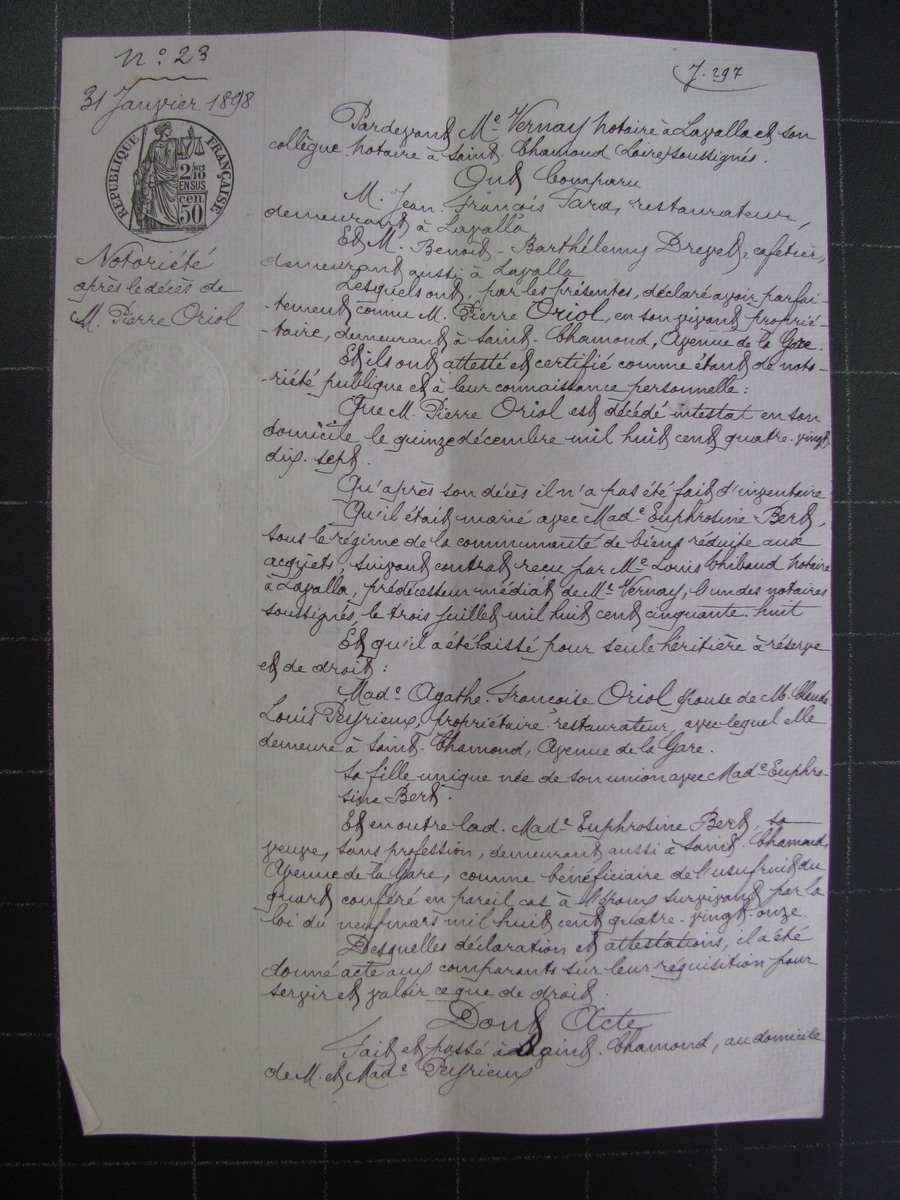 N: 23
J. 297
31 Janvier 1898
RÉPUBLIQUE FRANÇAISE
2/10
EN SUS
50 cen.
Notoriété
après le décès de
M. Pierre Oriol
Pardevant Me Vernay notaire à Lavalla et son
collègue notaire à Saint-Chamond (Loire) soussignés.
Ont Comparu
M. Jean-François Tardy, restaurateur,
demeurant à Lavalla
Et M. Benoit-Barthélemy Drevet, cafetier,
demeurant aussi à Lavalla
Lesquels ont, par les présentes, déclaré avoir parfai-
-tement connu M. Pierre Oriol, en son vivant proprié-
-taire, demeurant à Saint-Chamond, Avenue de la Gare.
Et ils ont attesté et certifié comme étant de noto-
-riété publique et à leur connaissance personnelle:
Que M. Pierre Oriol est décédé intestat en son
domicile le quinze décembre mil huit cent quatre-vingt
dix-sept.
Qu'après son décès il n'a pas été fait d'inventaire
Qu'il était marié avec Made Euphrosine Bert,
sous le régime de la communauté de biens réduite aux
acquêts, suivant contrat reçu par Me Louis Thibaud notaire
à Lavalla, prédécesseur médiat de Me Vernay, l'un des notaires
soussignés, le trois juillet mil huit cent cinquante-huit
Et qu'il a été laissé pour seule héritière à réserve
et de droit:
Made Agathe-Françoise Oriol épouse de M. Claude
Louis Peyrieux, propriétaire-restaurateur, avec lequel elle
demeure à Saint-Chamond, Avenue de la Gare.
sa fille unique née de son union avec Made Euphro-
sine Bert.
Et en outre lad. Made Euphrosine Bert, sa
veuve, sans profession, demeurant aussi à Saint-Chamond,
Avenue de la Gare, comme bénéficiaire de l'usufruit du
quart conféré en pareil cas à l'époux survivant par la
loi du neuf mars mil huit cent quatre-vingt-onze.
Desquelles déclaration et attestations, il a été
donné acte aux comparants sur leur réquisition pour
servir et valoir ce que de droit.
Dont Acte
Fait et passé à Saint-Chamond, au domicile
de M. et Made Peyrieux